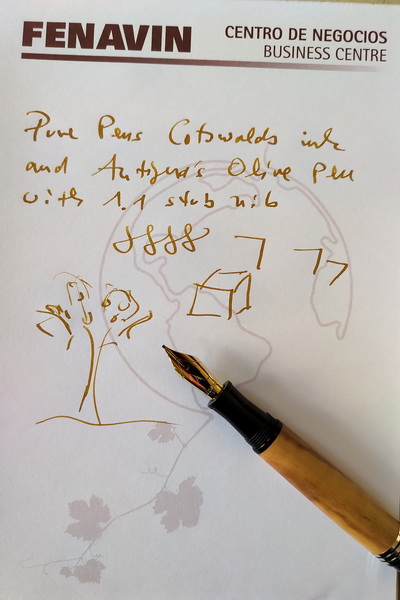 FENAVIN
CENTRO DE NEGOCIOS
BUSINESS CENTRE
Pure Pens Cotswolds ink
and Antiguris Olive Pen
with 1.1 stub nib